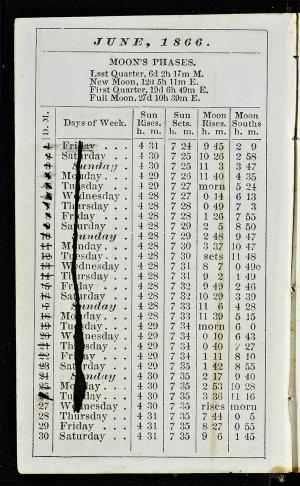 JUNE, 1866.
MOON'S PHASES.
Last Quarter, 6d 2h 17m M.
New Moon, 12d 5h 11m E.
First Quarter, 19d 6h 49m E.
Full Moon, 27d 10h 39m E.
D. M. Days of Week. Sun Rises. h. m. Sun Sets. h. m. Moon Rises. h. m. Moon Souths h. m.
Friday . . . 4 31 7 24 9 45 2 9
Saturday . . 4 30 7 25 10 26 2 58
Sunday . . 4 30 7 25 11 3 3 47
Monday . . . 4 29 7 26 11 40 4 35
Tuesday . . 4 29 7 27 morn 5 24
Wednesday . 4 28 7 27 0 14 6 13
Thursday . . 4 28 7 28 0 49 7 3
Friday . . . 4 28 7 28 1 26 7 55
Saturday . . 4 29 7 29 2 5 8 50
Sunday . . 4 28 7 29 2 48 9 47
Monday . . . 4 28 7 30 3 37 10 47
Tuesday . . 4 28 7 30 sets 11 48
Wednesday . 4 28 7 31 8 7 0 49e
Thursday . . 4 28 7 31 9 2 1 49
Friday . . . 4 28 7 32 9 49 2 46
Saturday . . 4 28 7 32 10 29 3 39
Sunday . . 4 28 7 33 11 6 4 28
Monday . . . 4 28 7 33 11 39 5 15
Tuesday . . 4 29 7 34 morn 6 0
Wednesday . 4 29 7 34 0 10 6 43
Thursday . . 4 29 7 34 0 40 7 27
Friday . . . 4 29 7 34 1 11 8 10
Saturday . . 4 29 7 35 1 42 8 55
Sunday . . 4 30 7 35 2 17 9 40
Monday . . . 4 30 7 35 2 53 10 28
Tuesday . . 4 30 7 35 3 36 11 16
27 Wednesday . 4 30 7 35 rises morn
28 Thursday . . 4 31 7 35 7 44 0 5
29 Friday . . . 4 31 7 35 8 27 0 55
30 Saturday . . 4 31 7 35 9 6 1 45